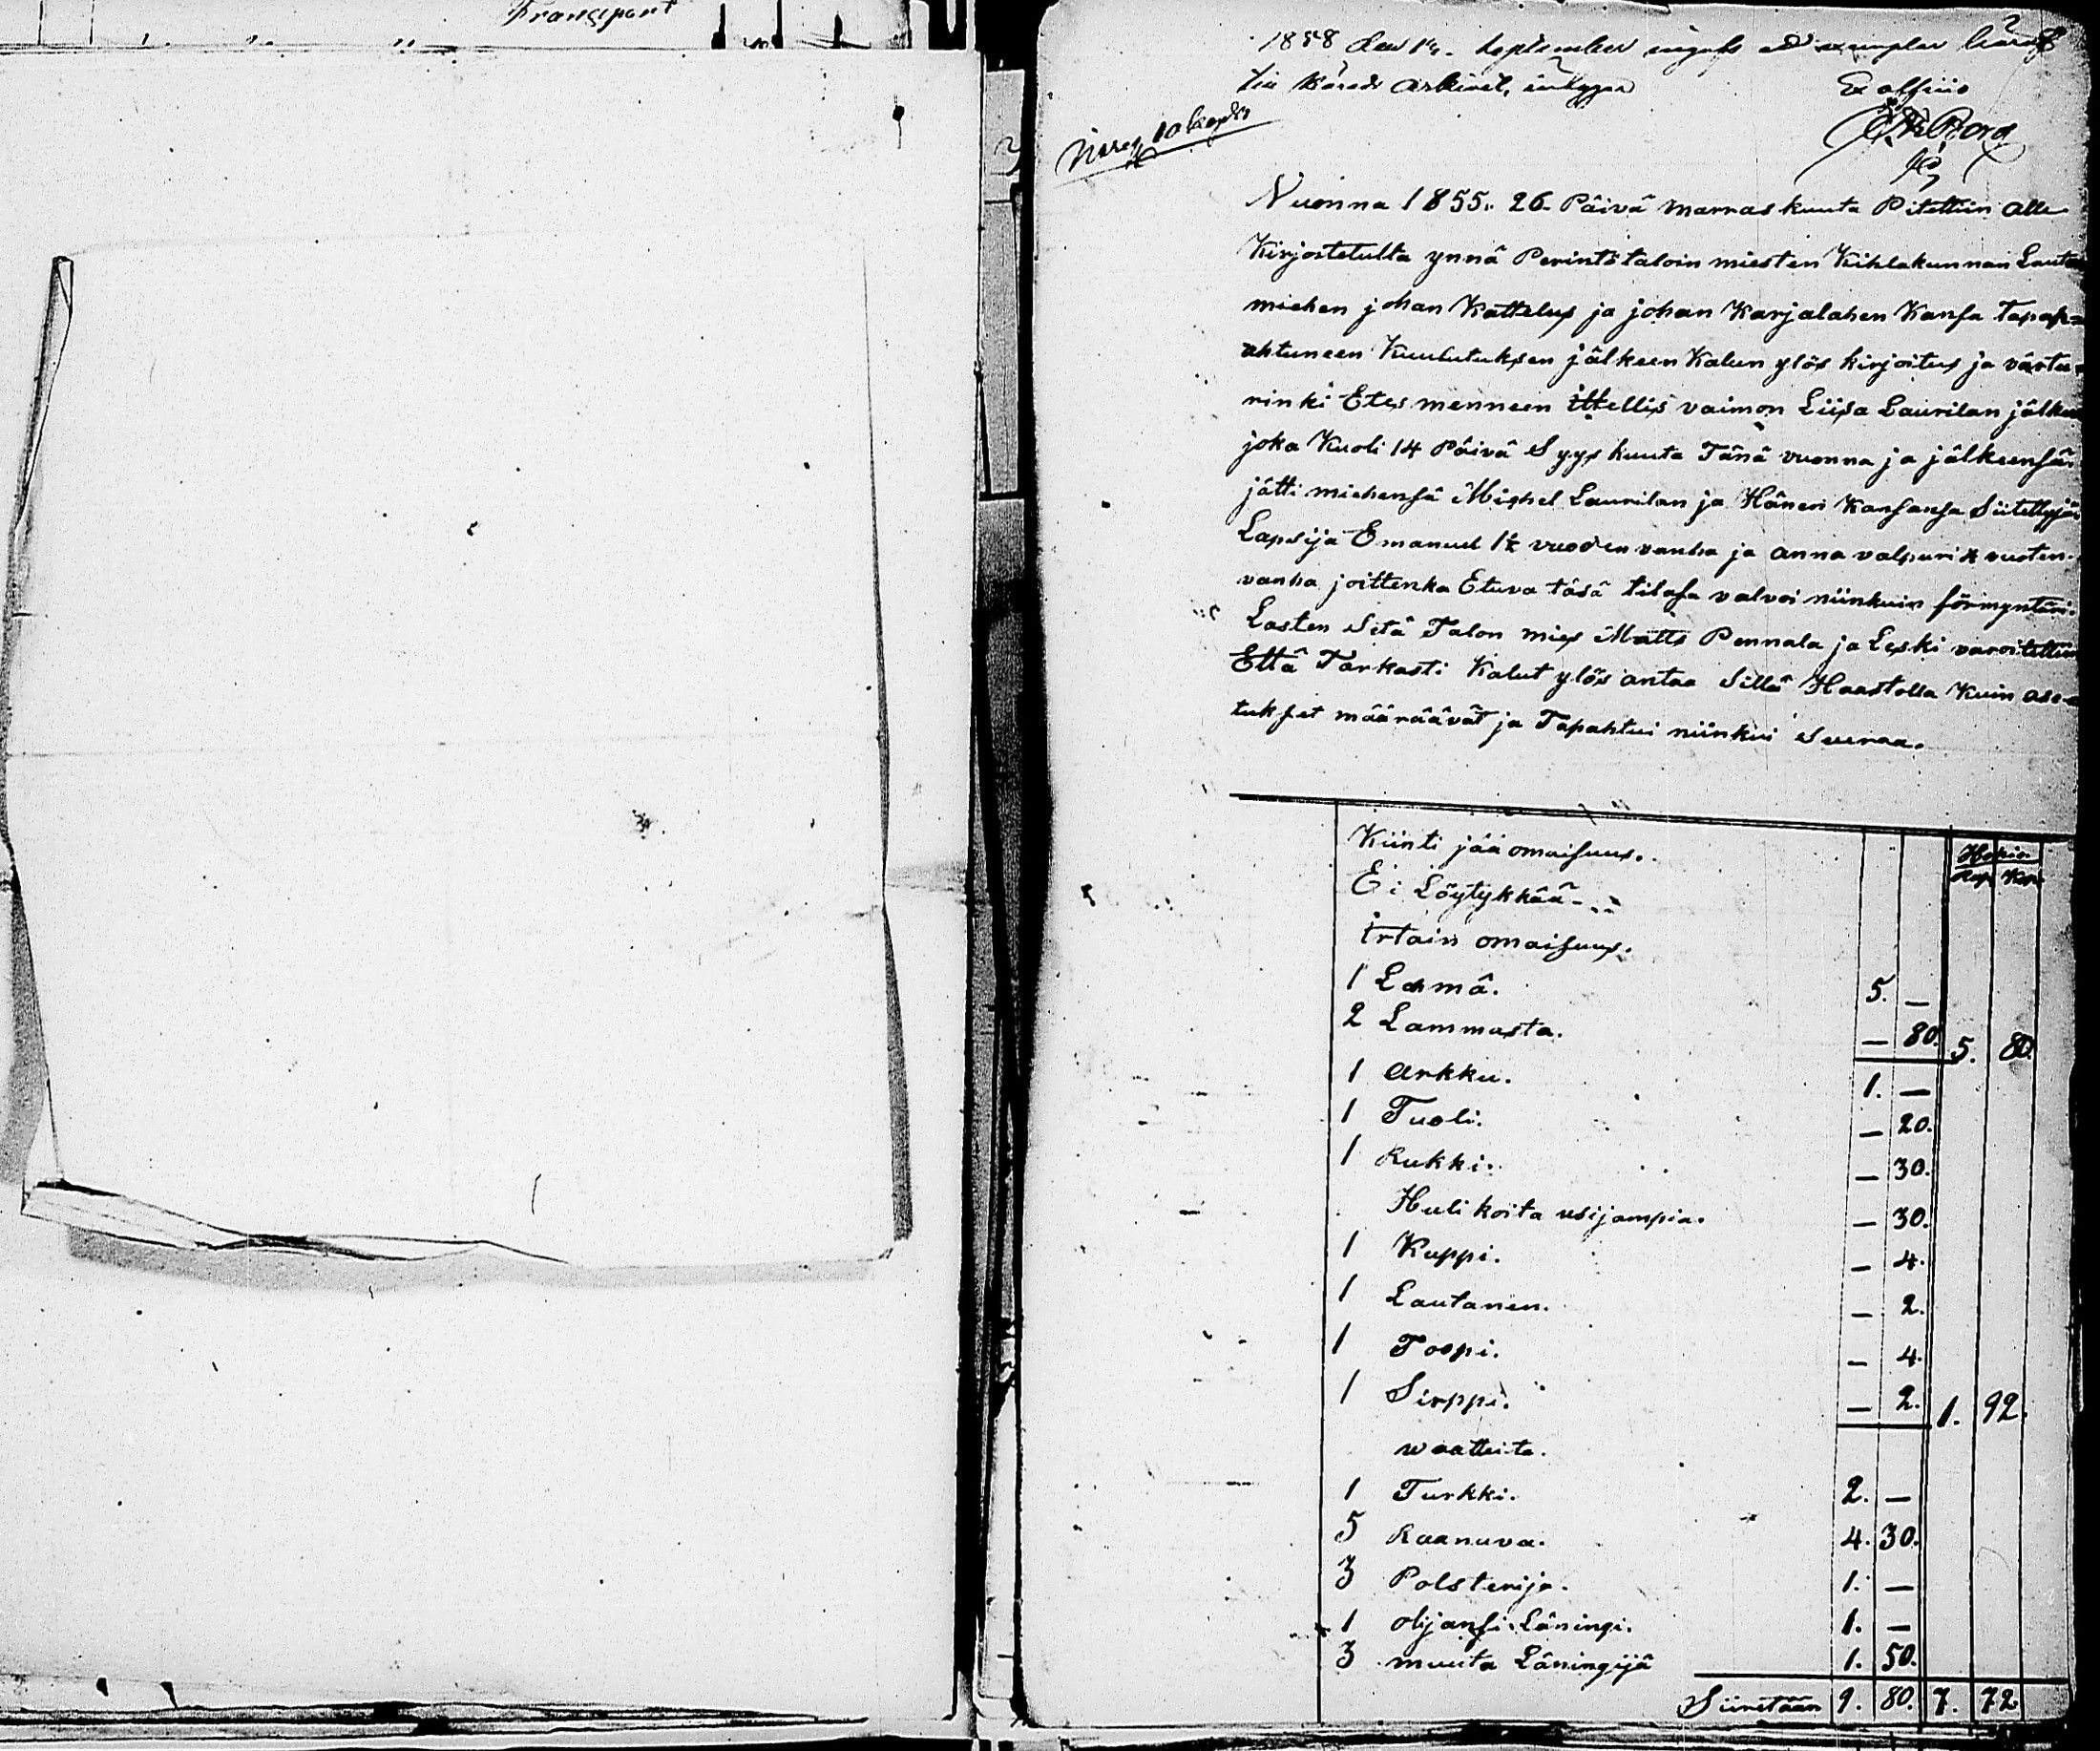 Transport
1858 den 14. September ingafs ett exemplar häraf
till Härads Arkivet, intygar
Ex officio
10 kop Sr
Nuonna 1855. 26. Päivä marraskuuta Pitettiin alle
Kirjoitetulta ynnä Perintö taloin miesten Kihlakunnan Lauta
miehen johan Kattelus ja johan Karjalahen Kansa Tapap=
ahtuneen Kuulutuksen jälkeen Kalun ylös kirjoitus ja värtee
rinki Etes menneen ittellis vaimon Liisa Laurilan jälkeen
joka Kuoli 14 Päivä Syys kuuta Tänä vuonna ja jälkeensä
jätti miehensä Michel Laurilan ja Hänen Kansansa Siitettyjä
Lapsija Emanuel 1½ vuoden vanha ja anna valpuri vuoten
vanha joittenka Etuva täsä tilasa valvoi niinkuin förmyntäri
Lasten Setä Talon mies Matts Pennala ja Leski varoitettiin
Että Tarkasti Kalut ylös antaa Sillä Haastolla Kuin ase-
tukset määräävät ja Tapahtui niinkui Seuraa.
Kiinti jää omaisuus.
Hopia
Rup Kop
Ei Löytykkää
irtain omaisuus.
1 Lehmä. 5. —
2 Lammasta. — 80. 5. 80.
1 Arkku. 1. —
1 Tuoli. — 20.
1 Rukki. — 30.
Hulikoita usijampia. — 30.
1 Kuppi. — 4.
1 Lautanen. — 2.
1 Toopi. — 4.
1 Sirppi. — 2. 1. 92.
waatteita.
1 Turkki. 2. —
5 Raanuva. 4. 30.
3 Polsterija. 1. —
1 olijansi Läningi. 1. —
3 muuta Läningijä 1. 50.
Siiretään 9. 80. 7. 72.